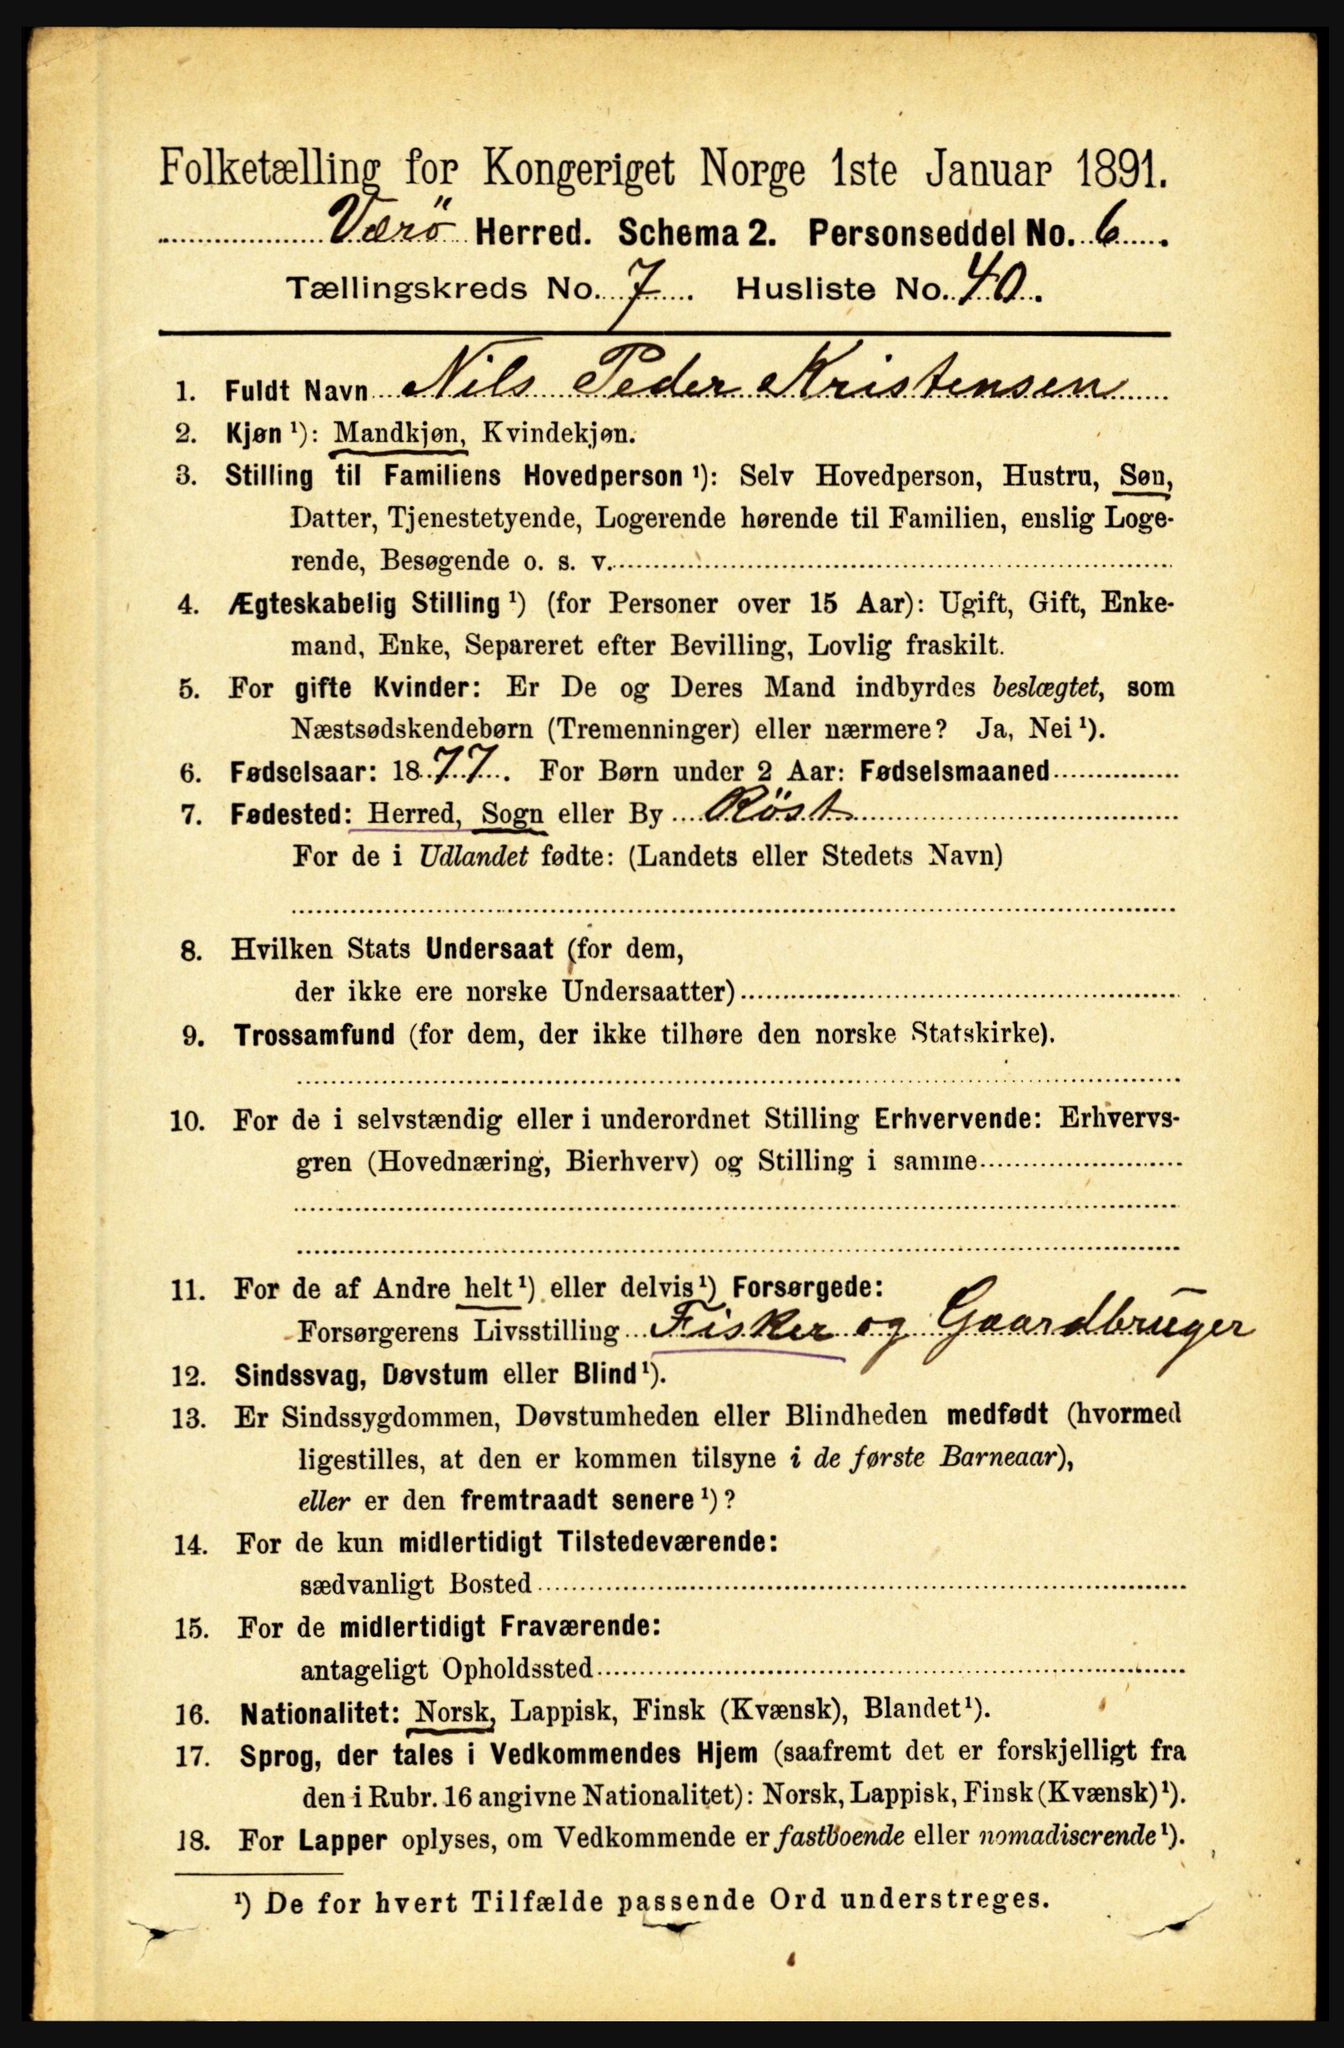 Folketælling for Kongeriget Norge 1ste Januar 1891.
Værö Herred. Schema 2. Personseddel No. 6.
Tællingskreds No. 7. Husliste No. 40.
1. Fuldt Navn Nils Peder Kristensen
2. Kjøn ¹): Mandkjøn, Kvindekjøn.
3. Stilling til Familiens Hovedperson ¹): Selv Hovedperson, Hustru, Søn,
Datter, Tjenestetyende, Logerende hørende til Familien, enslig Loge-
rende, Besøgende o. s. v.
4. Ægteskabelig Stilling ¹) (for Personer over 15 Aar): Ugift, Gift, Enke-
mand, Enke, Separeret efter Bevilling, Lovlig fraskilt.
5. For gifte Kvinder: Er De og Deres Mand indbyrdes beslægtet, som
Næstsødskendebørn (Tremenninger) eller nærmere? Ja, Nei ¹).
6. Fødselsaar: 1877. For Børn under 2 Aar: Fødselsmaaned
7. Fødested: Herred, Sogn eller By Röst
For de i Udlandet fødte: (Landets eller Stedets Navn)
8. Hvilken Stats Undersaat (for dem,
der ikke ere norske Undersaatter)
9. Trossamfund (for dem, der ikke tilhøre den norske Statskirke).
10. For de i selvstændig eller i underordnet Stilling Erhvervende: Erhvervs-
gren (Hovednæring, Bierhverv) og Stilling i samme
11. For de af Andre helt ¹) eller delvis ¹) Forsørgede:
Forsørgerens Livsstilling Fisker og Gaardbruger
12. Sindssvag, Døvstum eller Blind ¹).
13. Er Sindssygdommen, Døvstumheden eller Blindheden medfødt (hvormed
ligestilles, at den er kommen tilsyne i de første Barneaar),
eller er den fremtraadt senere ¹)?
14. For de kun midlertidigt Tilstedeværende:
sædvanligt Bosted
15. For de midlertidigt Fraværende:
antageligt Opholdssted
16. Nationalitet: Norsk, Lappisk, Finsk (Kvænsk), Blandet ¹).
17. Sprog, der tales i Vedkommendes Hjem (saafremt det er forskjelligt fra
den i Rubr. 16 angivne Nationalitet): Norsk, Lappisk, Finsk (Kvænsk) ¹).
18. For Lapper oplyses, om Vedkommende er fastboende eller nomadiserende ¹).
¹) De for hvert Tilfælde passende Ord understreges.